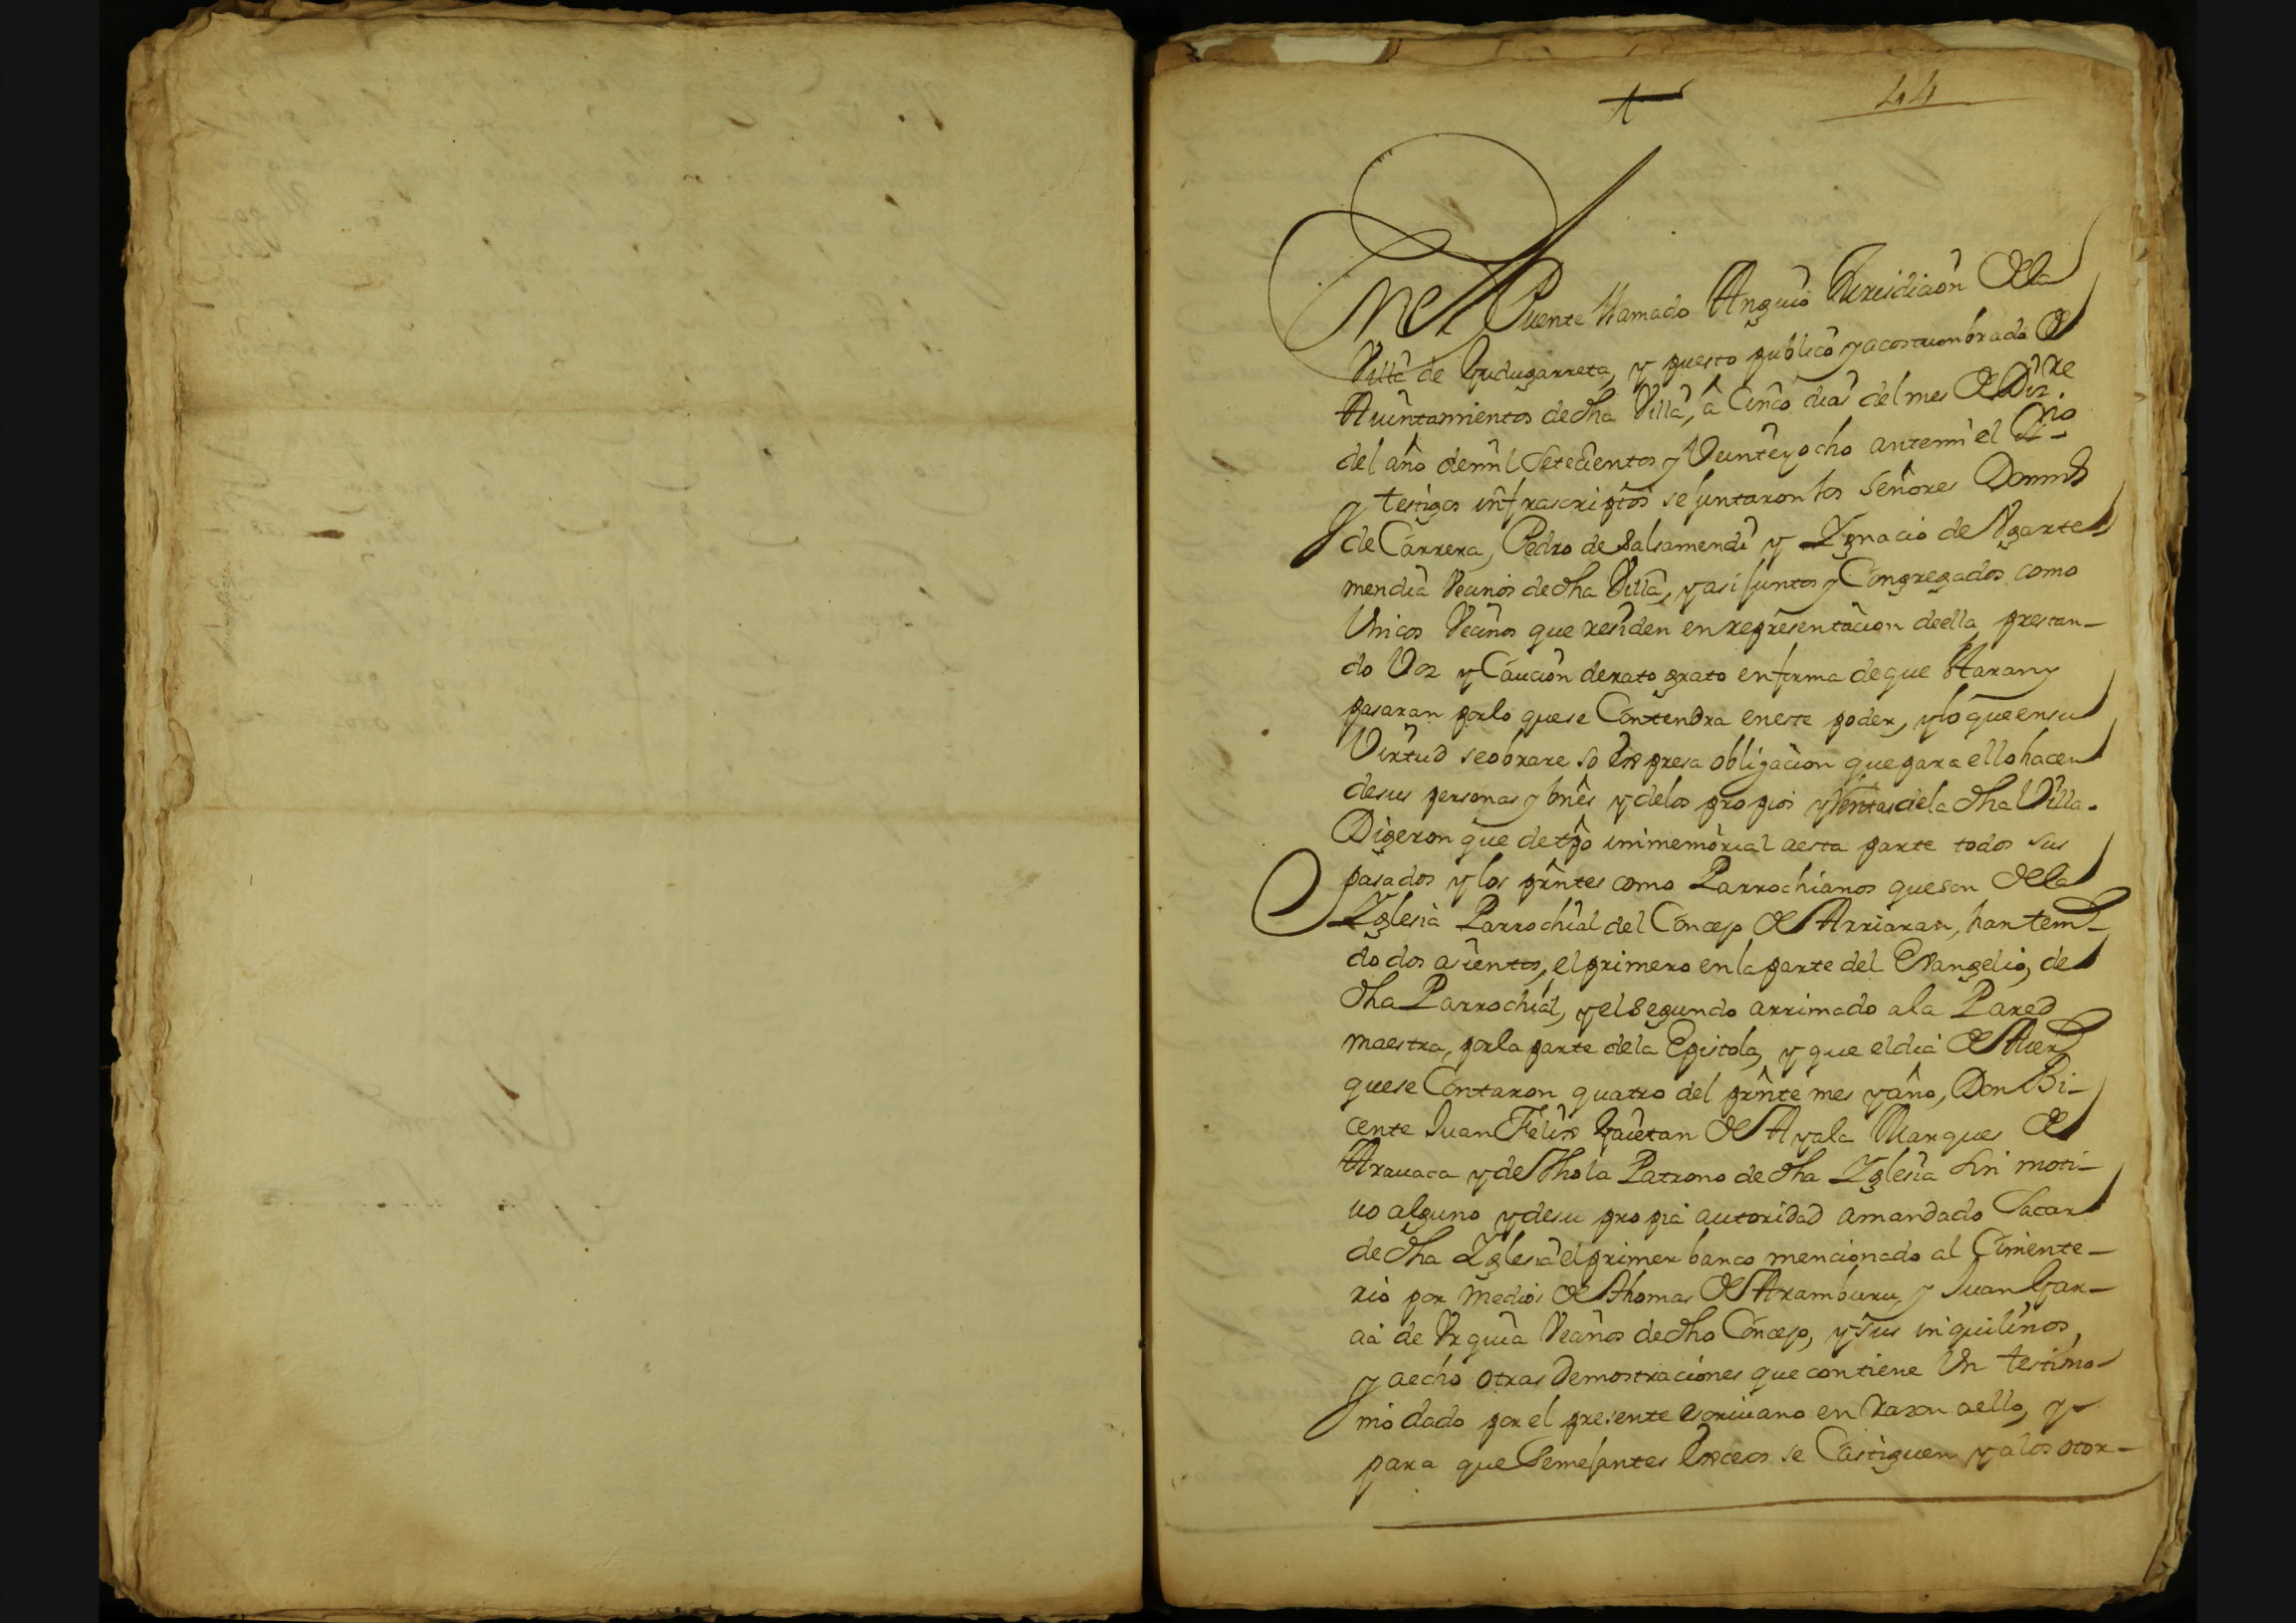 44
En el Puente llamado Anguio Jurisdicion dela
Villa de Gudugarreta, y puesto publico y acostumbrado de
Auintamientos de dha Villa, â Cinco dias del mes de Diz.re
del año de mil Setecientos y Veinteyocho antemi el Ss.no
y testigos infrascriptos se juntaron los Señores Domin.o
de Carrera, Pedro de Salsamendi y Ygnacio de Vgarte
mendia Vecinos de dha Villa, y asi juntos y Congregados como
Vnicos Vecinos que residen en representacion de ella prestan-
do Voz y Caucion de rato grato en forma de que Haran y
pasaran porlo quese Contendra eneste poder, ylo que ensu
Virtud seobrare so expresa obligacion quepara ello hacen
desus personas y bnês y delos propios y Rentas dela dha Villa.
Digeron que detpo inmemorial aesta parte todos sus
pasados y los prîntes como Parrochianos queson dela
Yglesia Parrochial del Concejo de Arriaran, han teni-
do dos asientos, el primero en la parte del Evangelio, de
dha Parrochial, y el Segundo arrimado ala Pared
maestra, porla parte dela Epistola, y que el dia de Aier
quese Contaron quatro del prînte mes y año, Don Bi-
cente Juan Felix Gaietan de Ayala Marques de
Arauaca y de Thola Patrono de dha Yglesia Sin moti-
uo alguno y desu propia autoridad amandado Sacar
de dha Yglesia el primer banco mencionado al Cimente-
rio por medios de Thomas de Aramburu, y Juan Gar-
cia de Vrquia Vecinos de dho Concejo, y sus inquilinos,
y aecho otras Demostraciones que contiene Vn testimo-
nio dado por el presente escriuano en razon aello, y
para que Semejantes Excesos se Castiguen y a los otor-